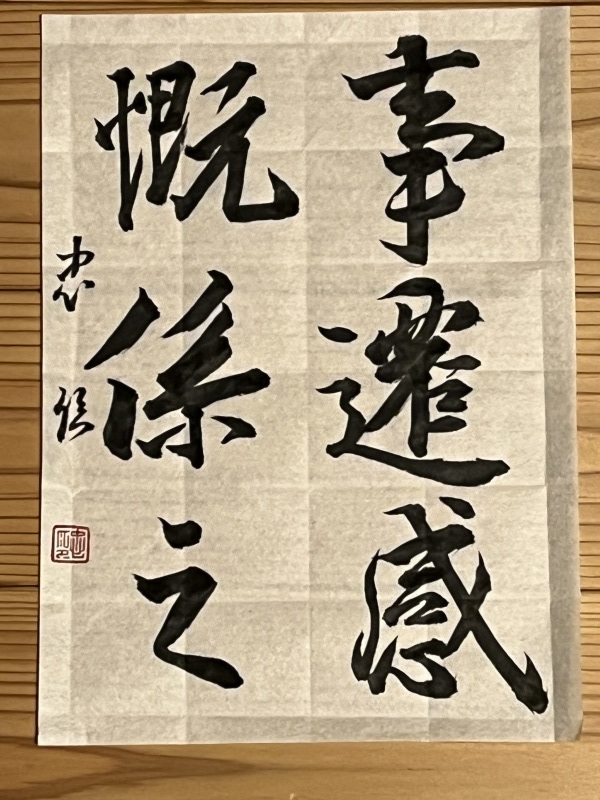 事遷感
慨係之
忠